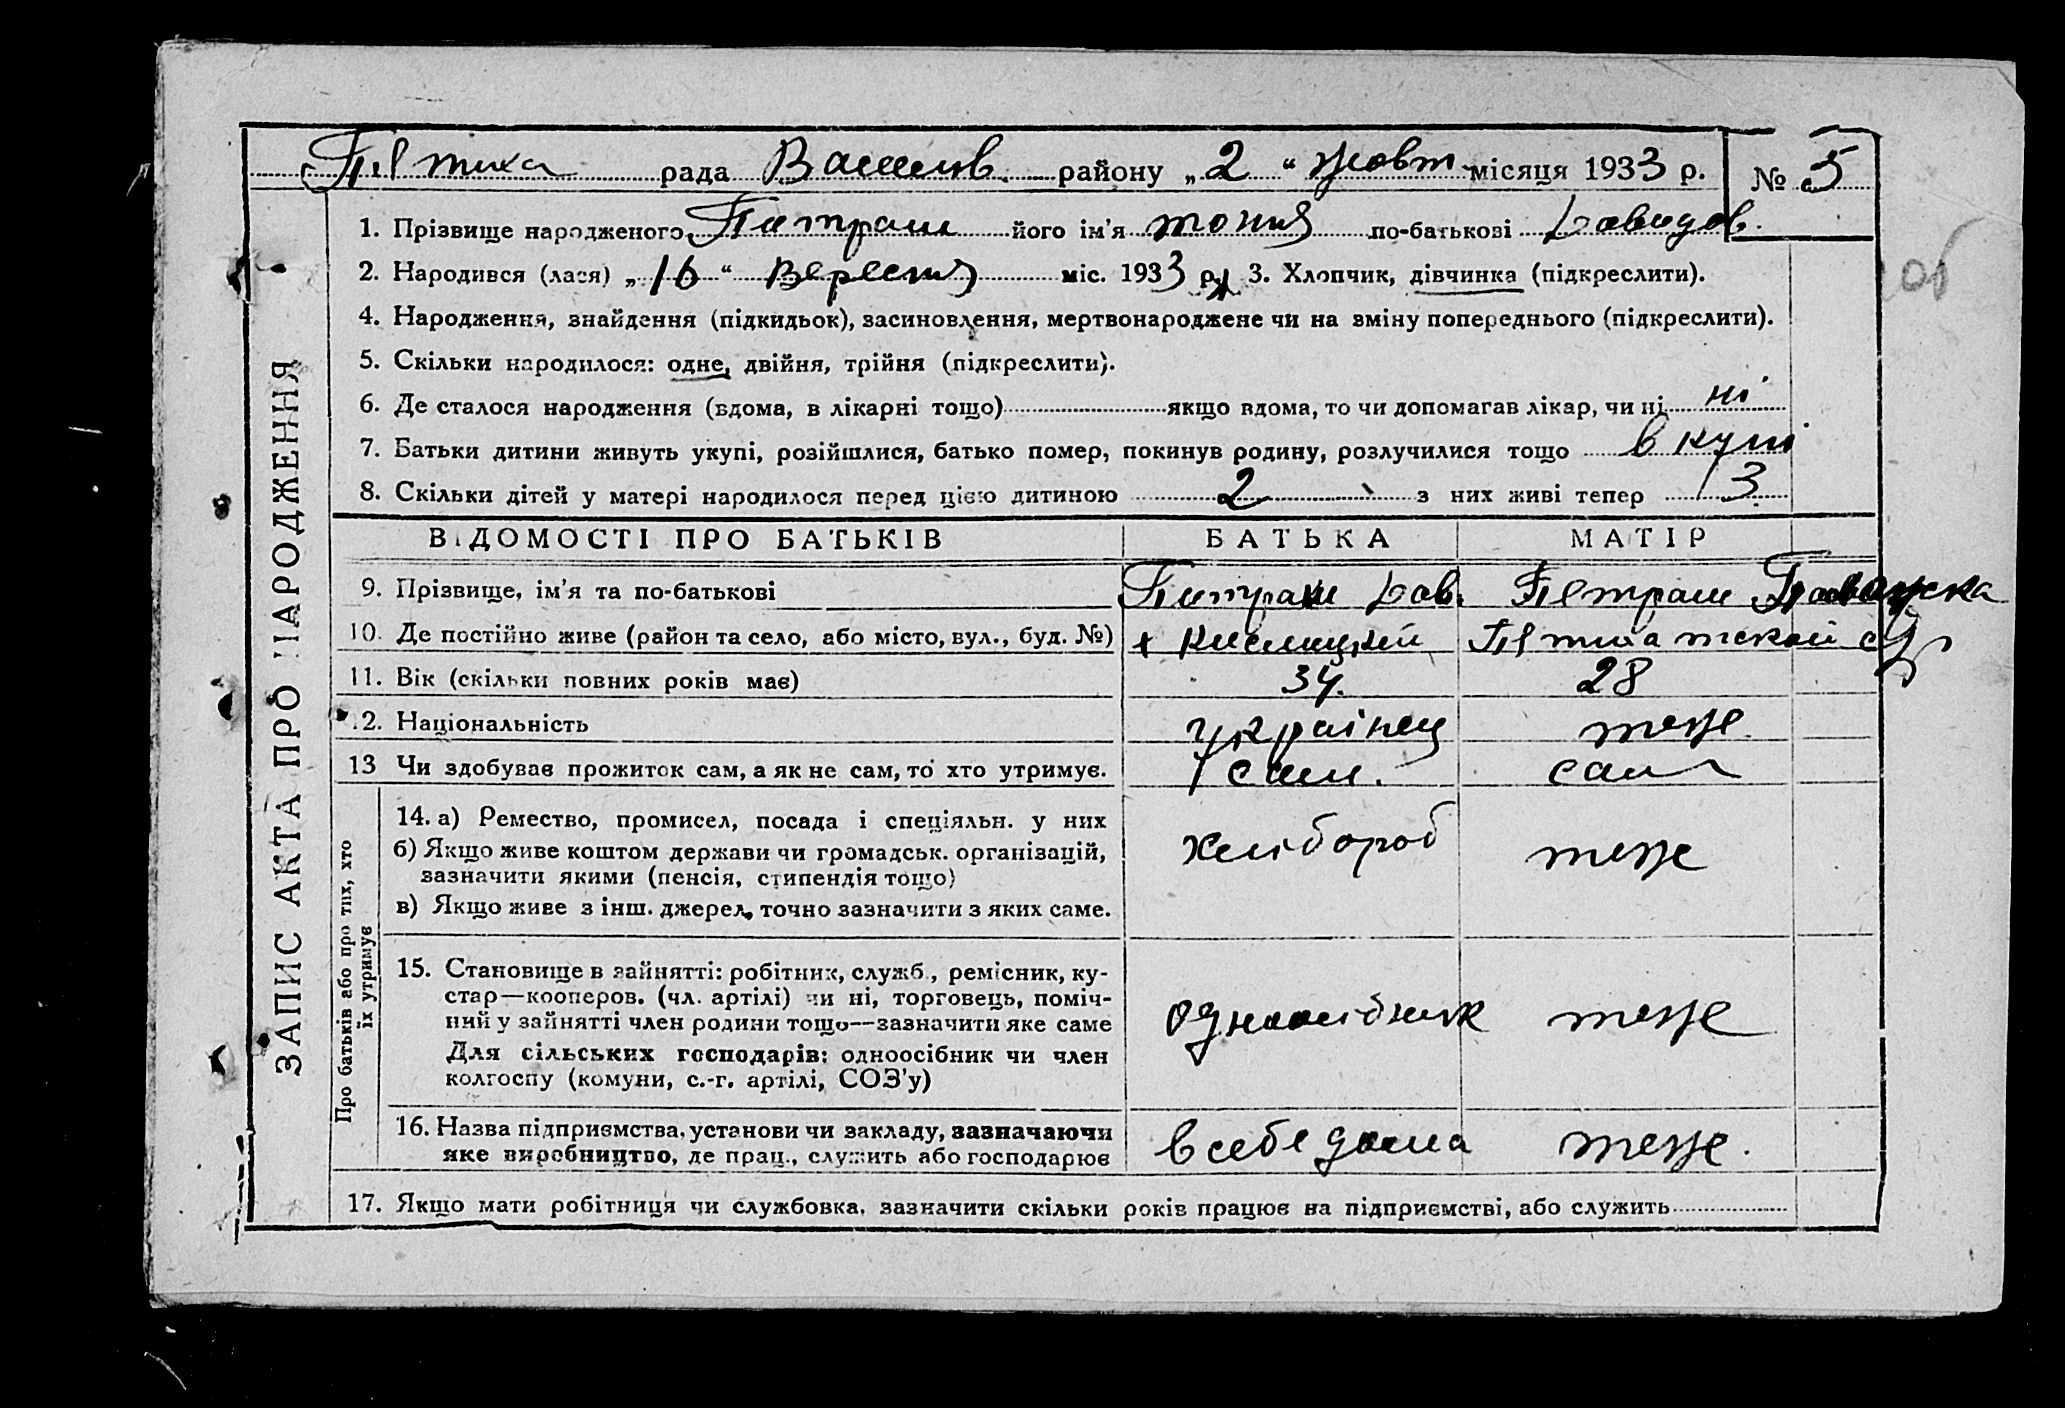 рада Василів. району „2“ Жовт місяця 1933 р. № 5
1. Прізвище народженого Питраш його ім’я тоня по-батькові Давидов.
2. Народився (лася) „16“ Вересня міс. 1933 р. 3. Хлопчик, дівчинка (підкреслити).
4. Народження, знайдення (підкидьок), засиновлення, мертвонароджене чи на зміну попереднього (підкреслити).
5. Скільки народилося: одне, двійня, трійня (підкреслити).
6. Де сталося народження (вдома, в лікарні тощо) якщо вдома, то чи допомагав лікар, чи ні ні
7. Батьки дитини живуть укупі, розійшлися, батько помер, покинув родину, розлучилися тощо в купі
8. Скільки дітей у матері народилося перед цією дитиною 2 з них живі тепер 3
ЗАПИС АКТА ПРО НАРОДЖЕННЯ
ВІДОМОСТІ ПРО БАТЬКІВ БАТЬКА МАТІР
9. Прізвище, ім’я та по-батькові Питраш Дав. Петраш
10. Де постійно живе (район та село, або місто, вул., буд. №)
11. Вік (скільки повних років має) 34. 28
12. Національність українец теже
13 Чи здобував прожиток сам, а як не сам, то хто утримує. сам. сам
Про батьків або про тих, хто їх утримує
14. а) Ремество, промисел, посада і спеціяльн. у них хлібороб теже
б) Якщо живе коштом держави чи громадськ. організацій,
зазначити якими (пенсія, стипендія тощо)
в) Якщо живе з інш. джерел, точно зазначити з яких саме.
15. Становище в зайнятті: робітник, служб., ремісник, ку-
стар—кооперов. (чл. артілі) чи ні, торговець, поміч-
ний у зайнятті член родини тощо—зазначити яке саме одноосібник теже
Для сільських господарів: одноосібник чи член
колгоспу (комуни, с.-г. артілі, СОЗ’у)
16. Назва підприємства, установи чи закладу, зазначаючи
яке виробництво, де прац., служить або господарює всебе дома теже.
17. Якщо мати робітниця чи службовка, зазначити скільки років працює на підприємстві, або служить